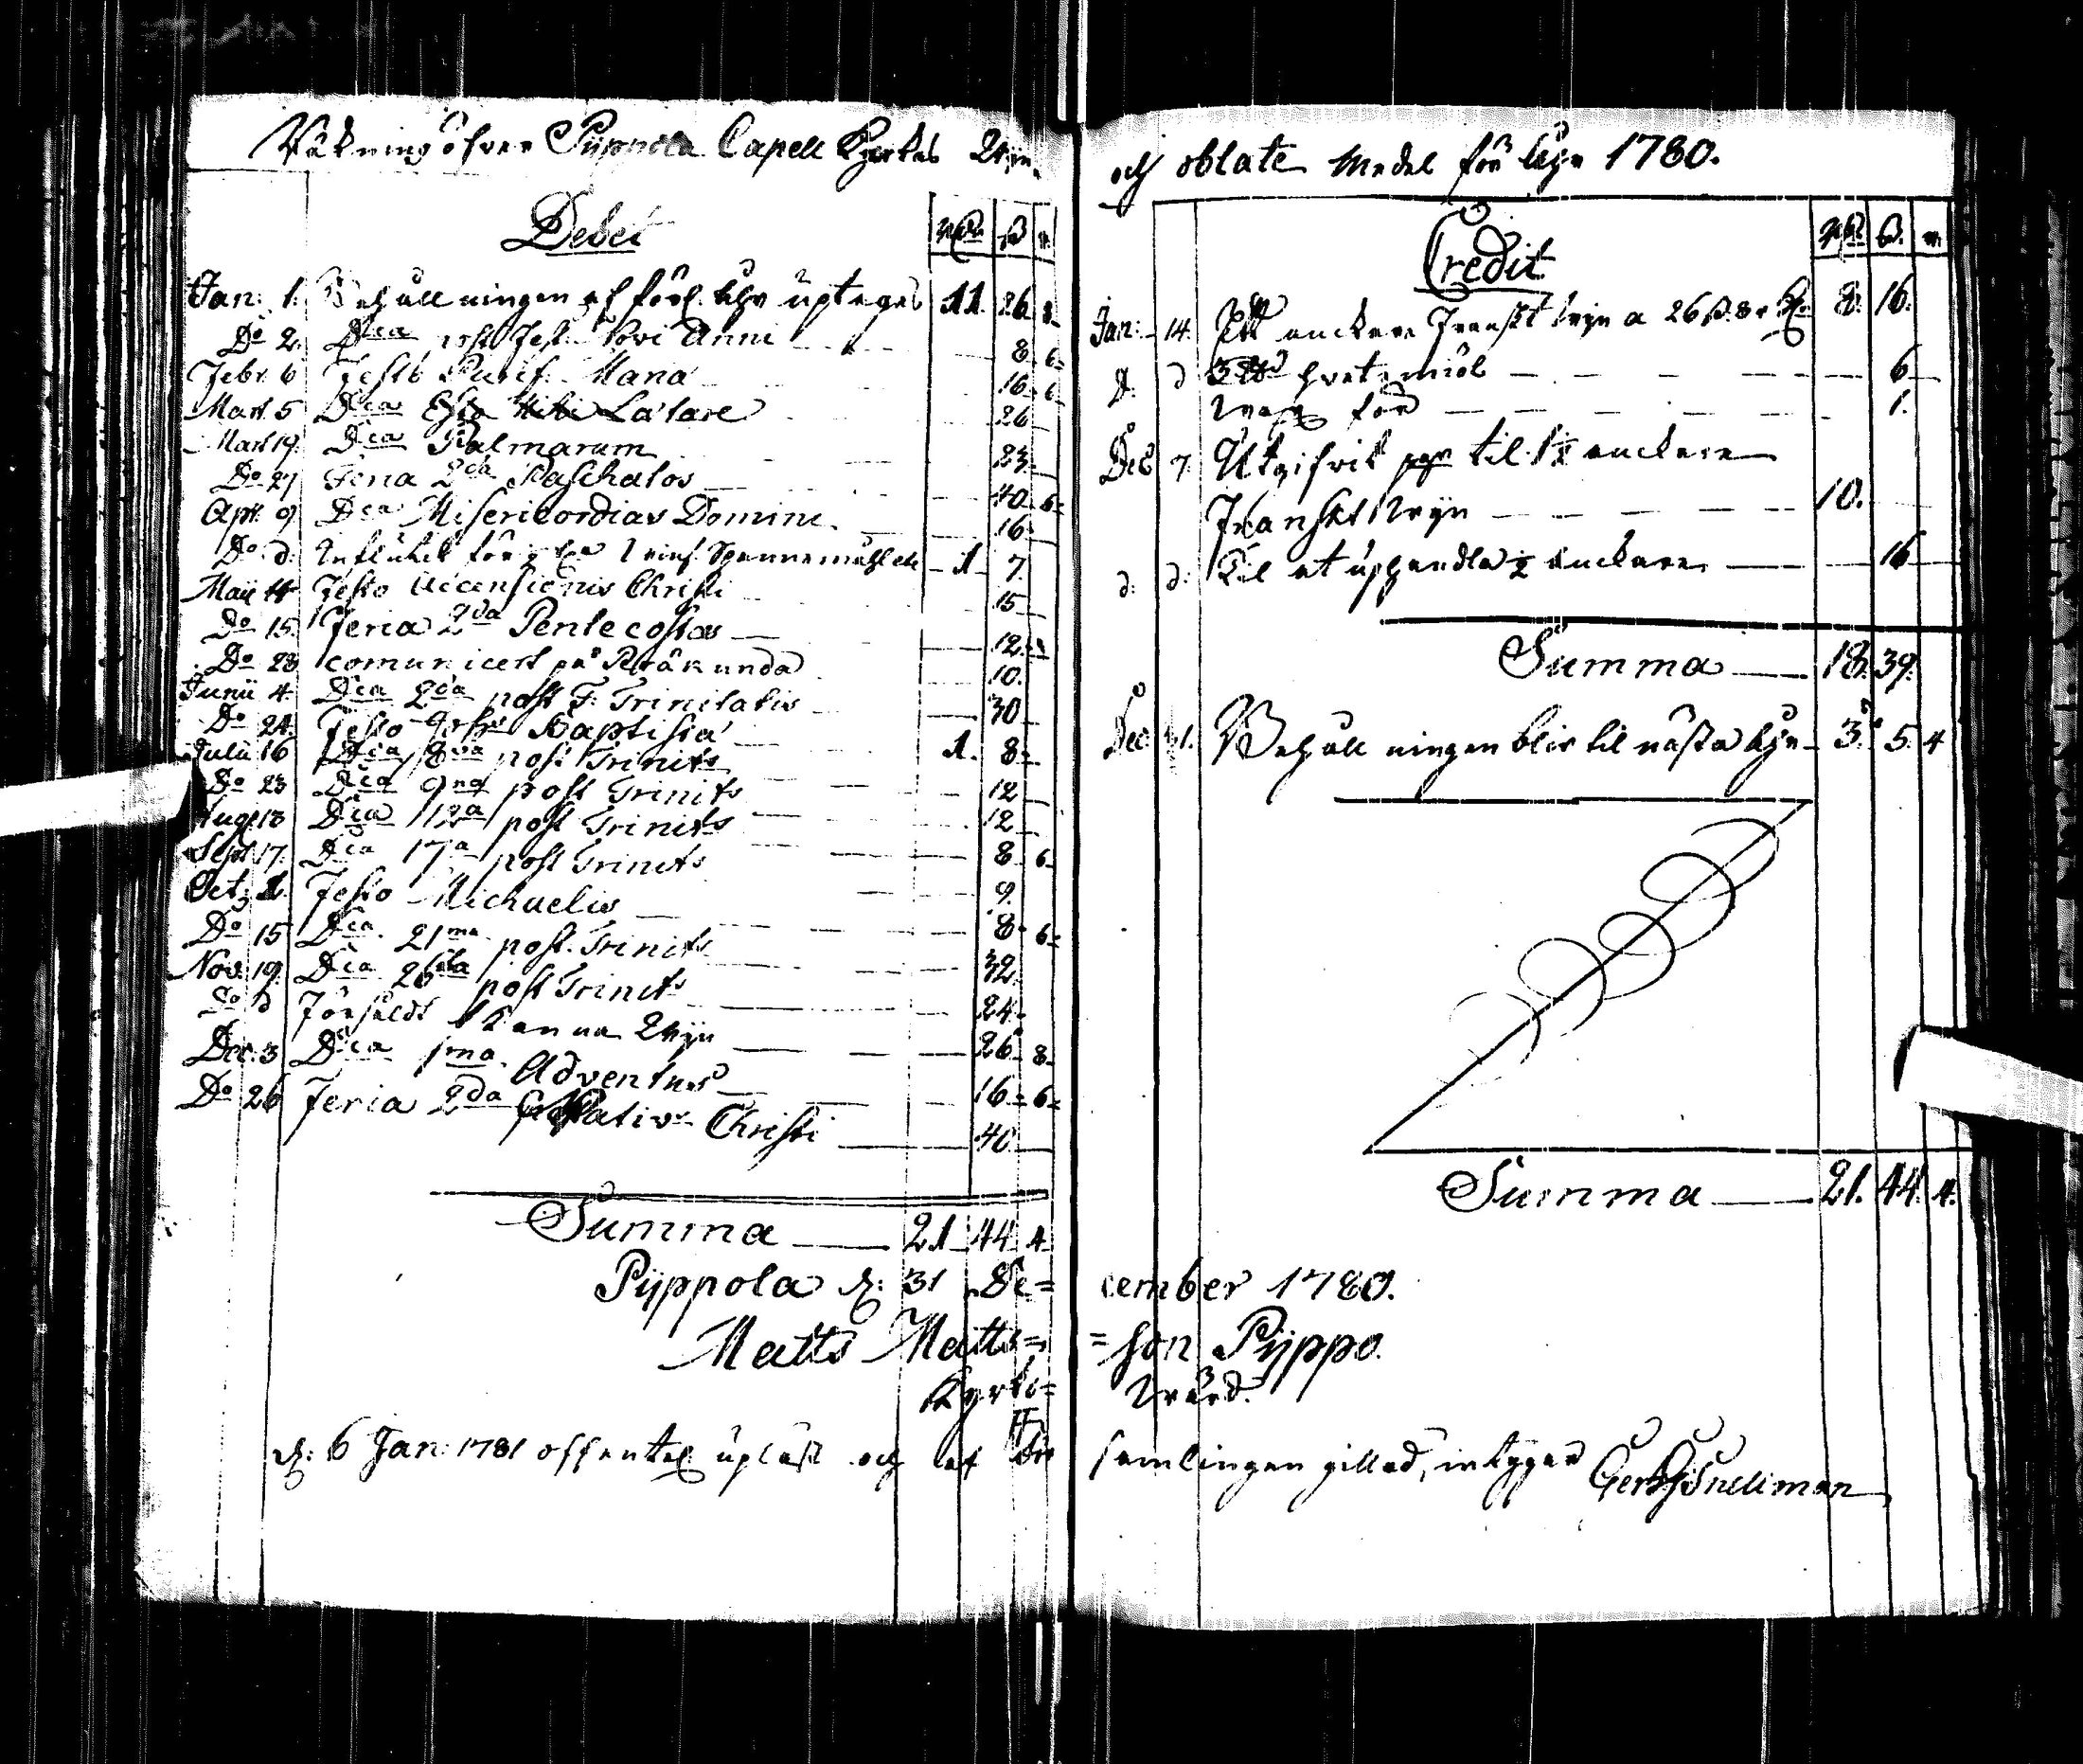 Räkning öfver Pyppola Capell Kyrkas Wijn
Debet
Jan: 1. Behållningen af förl. åhr uptages 11. 26. 8.
Do 2. Dca post Fest. Novi Anni 8. 6.
Febr. 6 Festo Purif. Maria 16. 6.
Mart. 5 Dca Lätare 26
Mart. 19. Dca Palmarum 23.
Do 27 Feria 2da Paschatos 40. 6.
Apr. 9. Dca Misericordias Domini 16.
Do d: Influtit för 1. 7.
Maij 4 Festo Adscensionis Christi 15
Do 15. Feria 2da Pentecostas 12.
Do 28 comunicert på Peräkunda 10.
Junii 4. Dca 2da post F. Trinitatis 30
Do 24. Festo Joh: Baptistæ 1. 8.
Julii 16 Dca 8va post Trinits
Do 23 Dca 9na post Trinits 12
Aug. 13 Dca 12a post Trinits 12
Sept. 17. Dca 17a post Trinits 8. 6.
Oct. 1. Festo Michaelis 9.
Do 15 Dca 21ma post. Trinits 8. 6.
Nov. 19. Dca 26ta post Trinits 32.
Do d Försåldt 1 Kanna Wijn 24.
Dec. 3 Dca 1ma Adventus 26. 8.
Do 26 Feria 2da Nativ. Christi 16. 6.
40.
Summa 21. 44. 4.
Pyppola d: 31 De=
Matts Matts=
Kyrko=
d: 6 Jan: 1781 offentel. upläst och af För
och oblate Medel för åhr 1780.
Credit
Jan: 14. Ett anckare Franskt wijn a 26 8. 16.
d. d hvetemiöl 6
för 1.
Dec 7. Utgifvit til 1½ anckare
Franskt Wijn 10.
d: d: Til at uphandla ½ anckare 16
Summa 18. 39.
Dec. 31. Behållningen blir til nästa åhr 3. 5. 4
Summa 21. 44. 4.
cember 1780.
=son Pyppo.
Wärd.
samlingen gillad, intygar Snellman